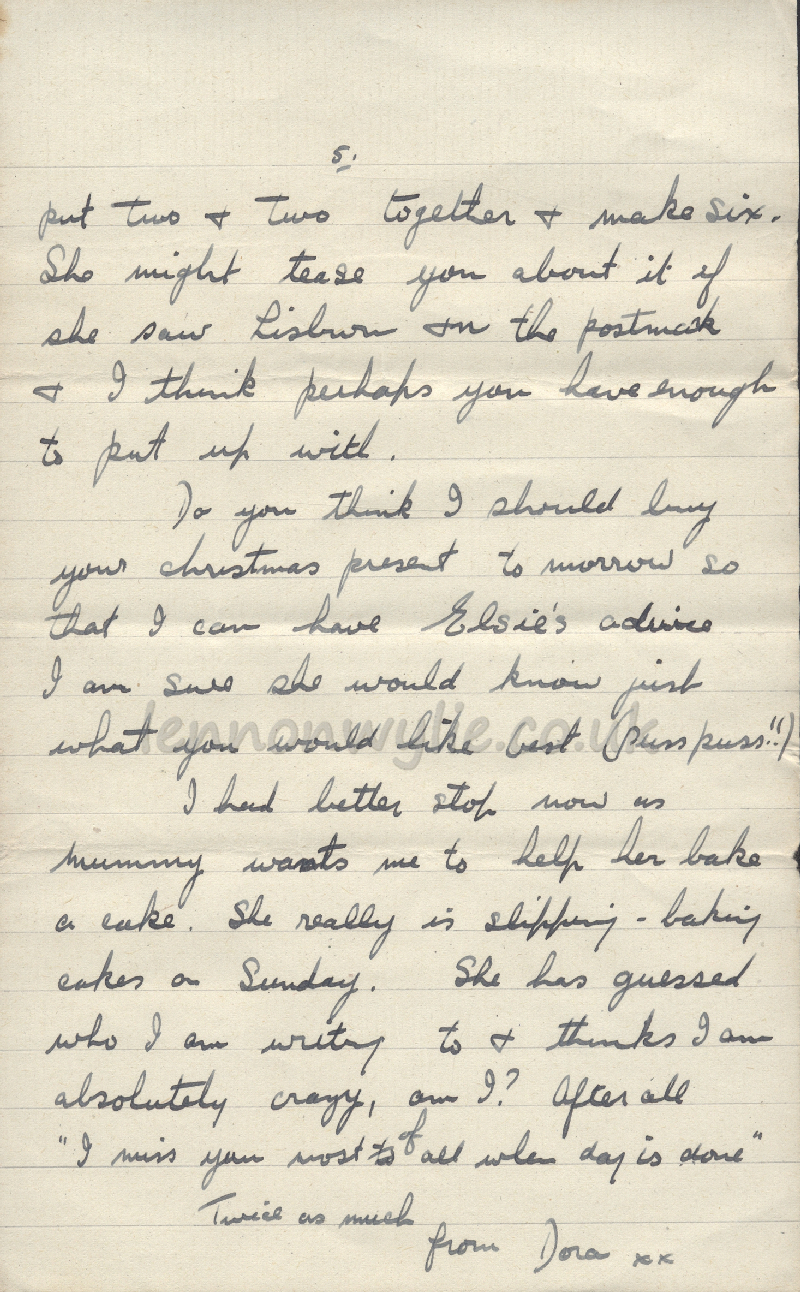 5.
put two & two together & make six.
She might tease you about it if
she saw Lisburn on the postmark
& I think perhaps you have enough
to put up with.
Do you think I should buy
your christmas present to morrow so
that I can have Elsie's advice
I am sure she would know just
what you would like best (Puss puss!!)
lennonwylie.co.uk
I had better stop now as
Mummy wants me to help her bake
a cake. She really is slipping - baking
cakes on Sunday. She has guessed
who I am writing to & thinks I am
absolutely crazy, am I? After all
"I miss you most of all when day is done"
Twice as much
from Dora xx